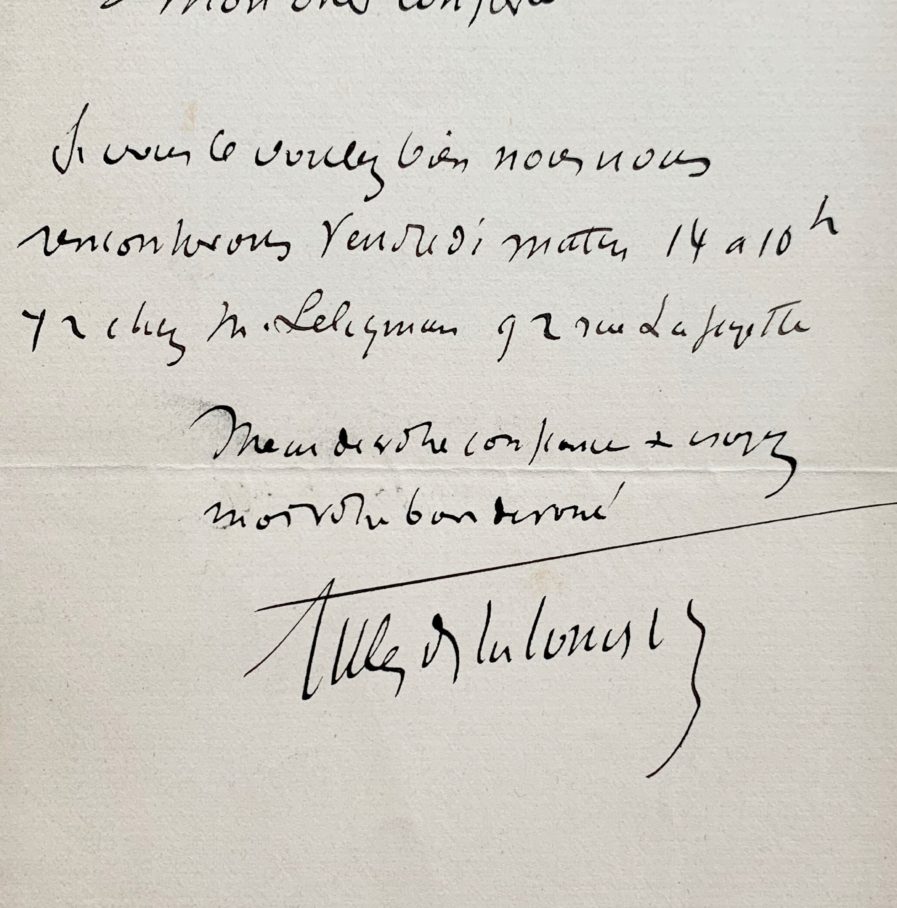 mon cher confrère
Si vous le voulez bien nous nous
rencontrerons Vendredi matin 14 a 10 h
1/2 chez M. Seligman 92 rue Lafayette
de votre confiance & croyez
moi votre bien dévoué